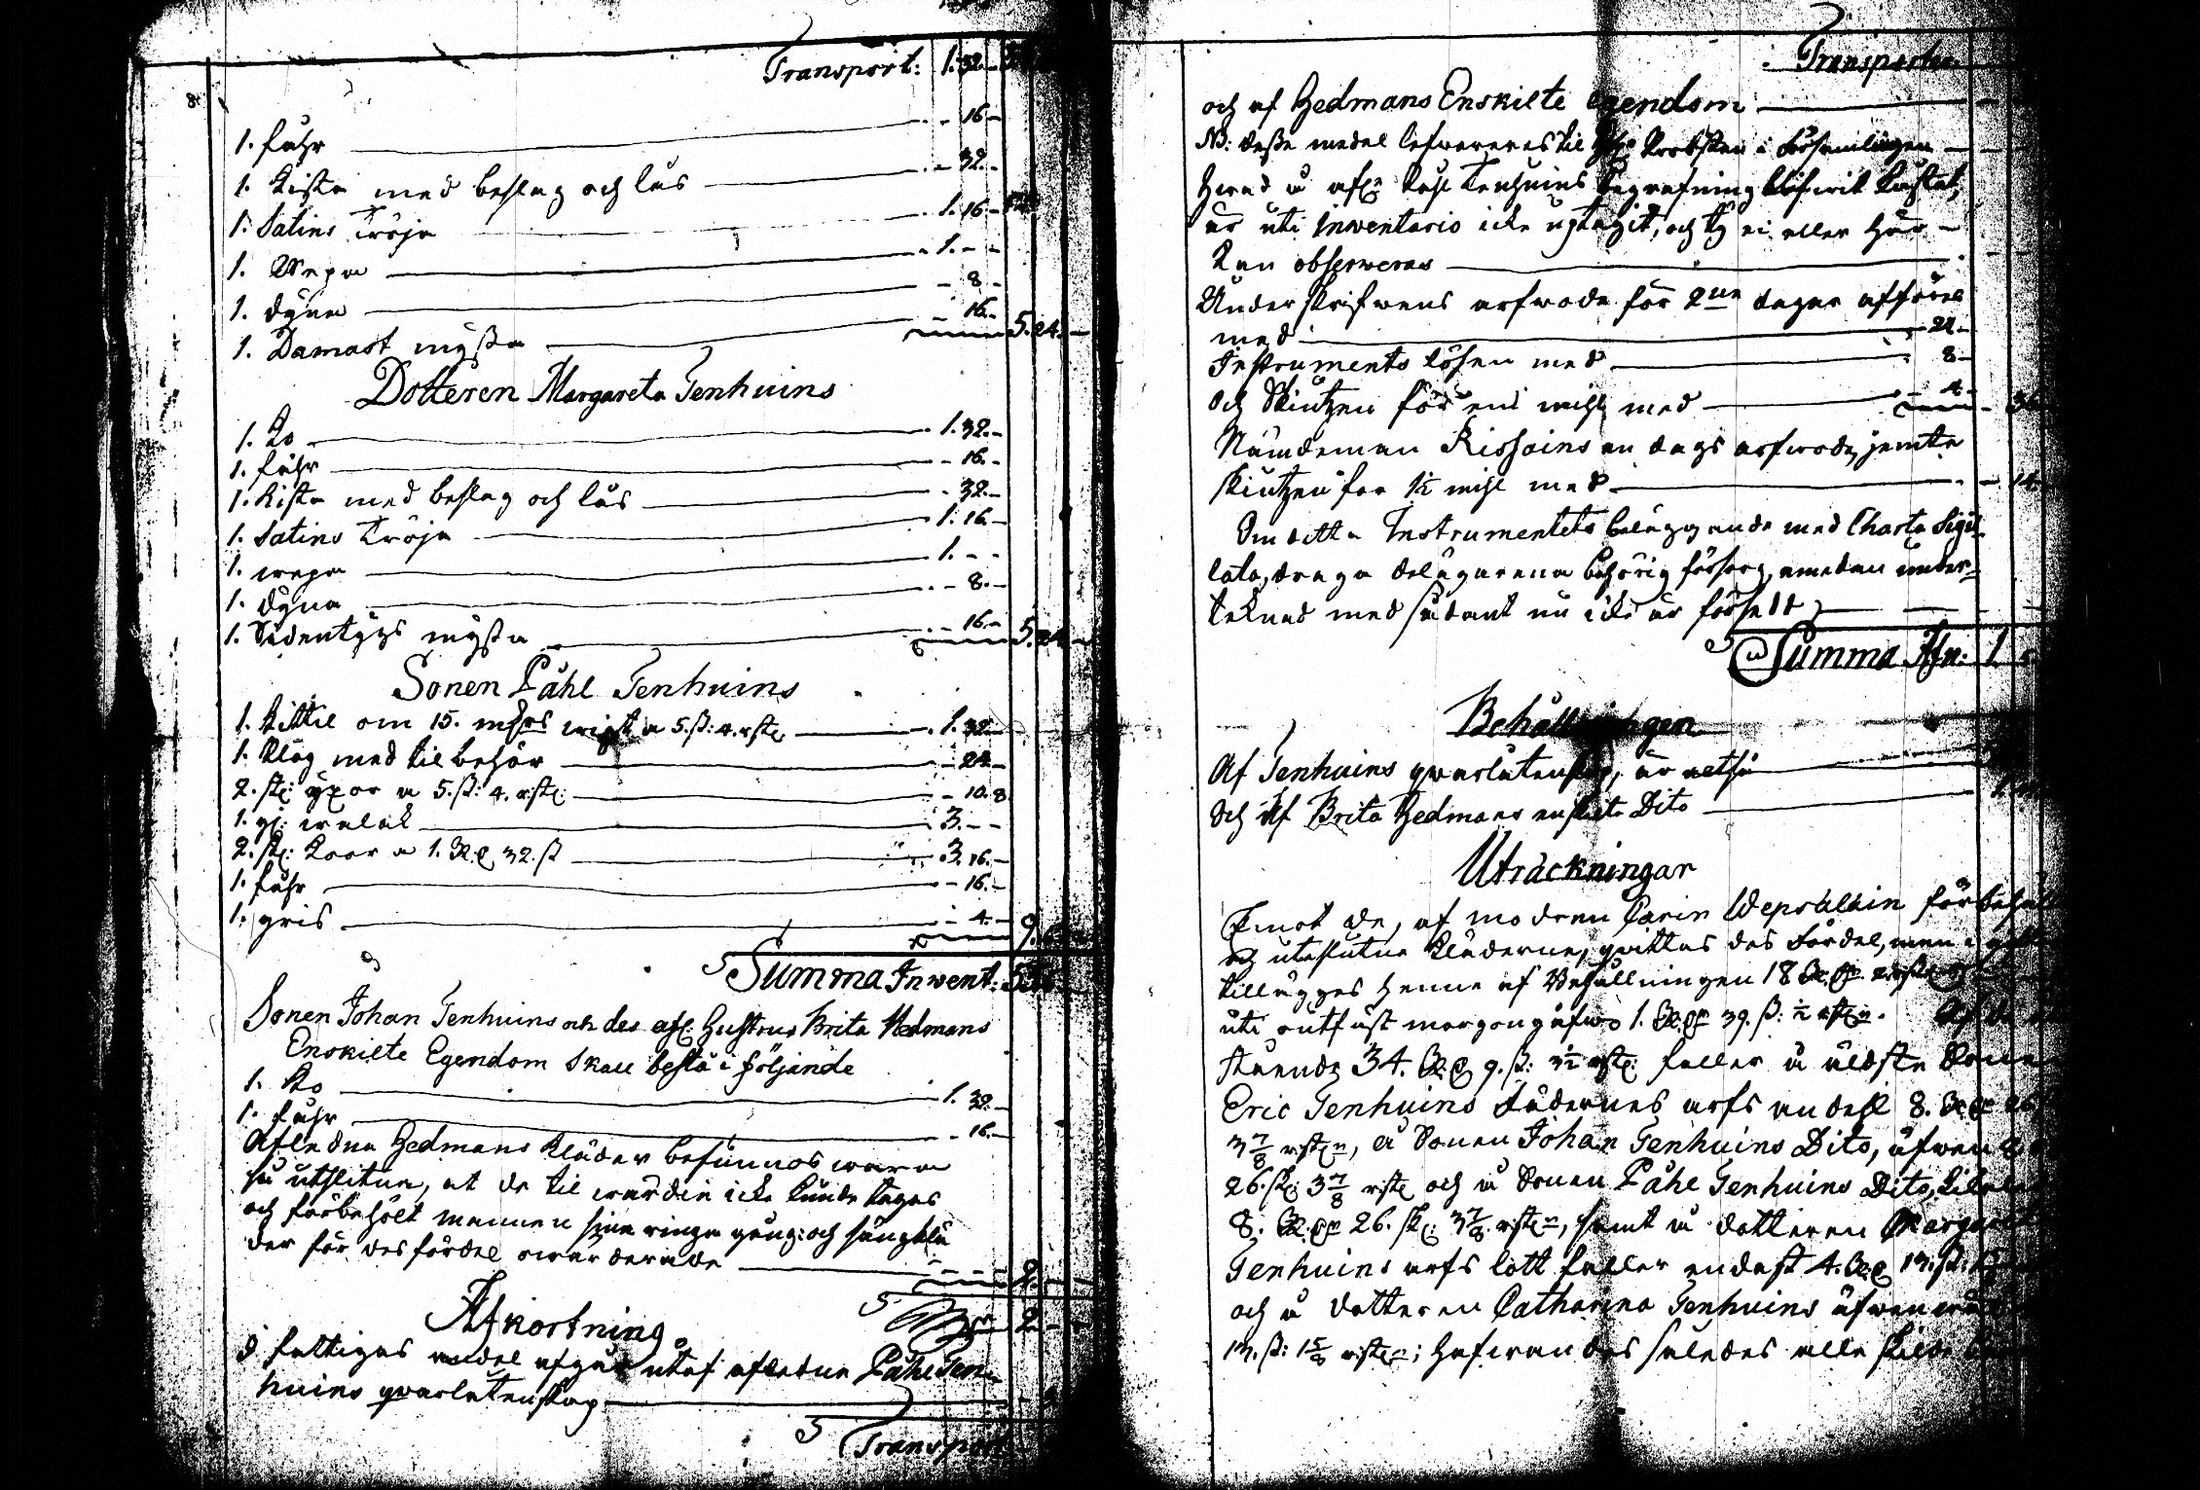 Transport: 1.32.-
8.
1. fåhr - 16 -
1. Kista med beslag och lås - 32.-
1. Satins Tröja 1.16.-
1. Wepa 1. - -
1. dyna - 8 -
1. Damast mÿssa - 16.- 5.24.-
Dotteren Margareta Tenhuins
1. Ko 1.32.-
1. fåhr - 16.-
1. Kista med beslag och lås - 32.-
1. Satins Tröja 1.16.-
1. wepa 1. - -
1. dyna - 8.-
1. Sidentÿgs mÿssa - 16.- 5.24.-
Sonen Påhl Tenhuins
1. Kittil om 15. wigt a 5.ß: 4. rst: 1.32.-
1. Plog med tilbehör - 24.-
2. st: ÿxor a 5.ß: 4. rst: - 10.8
1. walak 3. - -
2. st: Koor a 1. 32.ß 3.16.-
1. fåhr - 16.-
1. gris - 4.- 9.
Summa Inwent:
Sonen Johan Tenhuins och des afl: Hustrus Brita Hedmans
Enskilte Egendom skall bestå i följande
1. Ko 1.32.-
1. fåhr - 16.-
Afledna Hedmans kläder befunnos wara
så utslitna, at de til wärdie icke kunde tagas
och förbehölt mannen sina ringa gång: och sängklä
der för des fördel owärderade 2.
2
Afkortning
d fattigas andel afgår utaf afledna Påhl Ten-
huins qwarlåtenskap
Transport
Transporten
och af Hedmans Enskilte egendom
NB: desse medel lefwereres til Probsten i Församlingen
Hwad å afl: Påhl Tenhuins begrafning blifwit kostat,
är uti Inventario icke uptagit, och ty ei eller här
kan observeras
Underskrifwens arfwode för 2ne dagar afföres
med - 24.-
Instruments lösen med - 8 -
och Skiutzen för en mihl med - 4.-
Nämdeman Rissains en dags arfwode, jemte
skiutzen för 1½ mihl med
Om detta Instrumentets beläggande med Charta Sigil-
lata, draga delägarena behörig försorg, emedan under-
teknad med sådant nu icke är försedd
Summa Afn: 1
Behållningen
Af Tenhuins qwarlåtenskap, är altså
Och Af Brita Hedmans enskilte Dito
Uträckningar
Emot de, af modren Carin Wepsäläin förbehåll
och uteslutna Kläderna, qvittas des Fördel, men
tillägges henne af Behållningen 18
uti outfäst morgongåfwo 1. 39. ß: ½ rst:
stående 34. 9. ß: 3½ rst: faller å äldste Sonen
Eric Tenhuins Fädernes arfs andehl 8.
3⅞ rst:, å Sonen Johan Tenhuins Dito, äfwen 8
26. sk: 3⅞ rst och å Sonen Påhl Tenhuins Dito,
8. 26. sk: 3⅞ rst:, samt å dotteren Margaret
Tenhuins arfs lott faller endast 4. 13. ß:
och å dotteren Catharina Tenhuins äfwen
13. ß: 1⅝ rst:; Hafwandes således alla